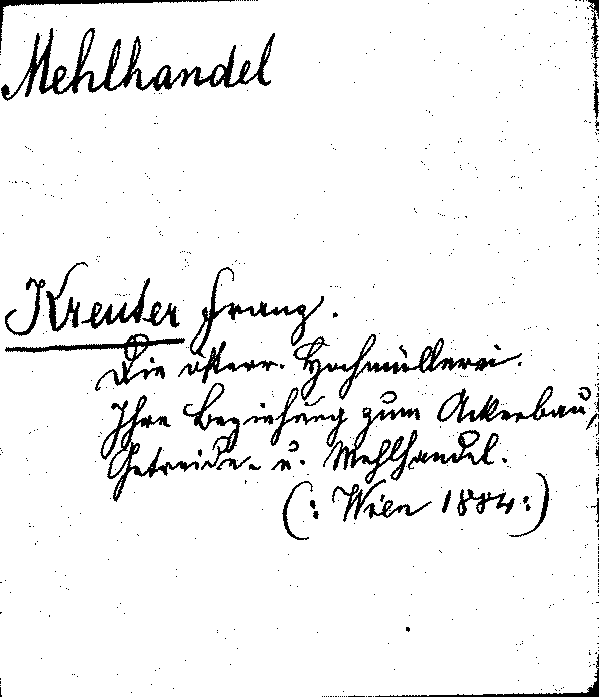 Mehlhandel
Kreuter Franz.
Die österr. Hochmüllerei.
Ihre Beziehung zum Ackerbau,
Getreide- u. Mehlhandel.
(: Wien 1884 :)